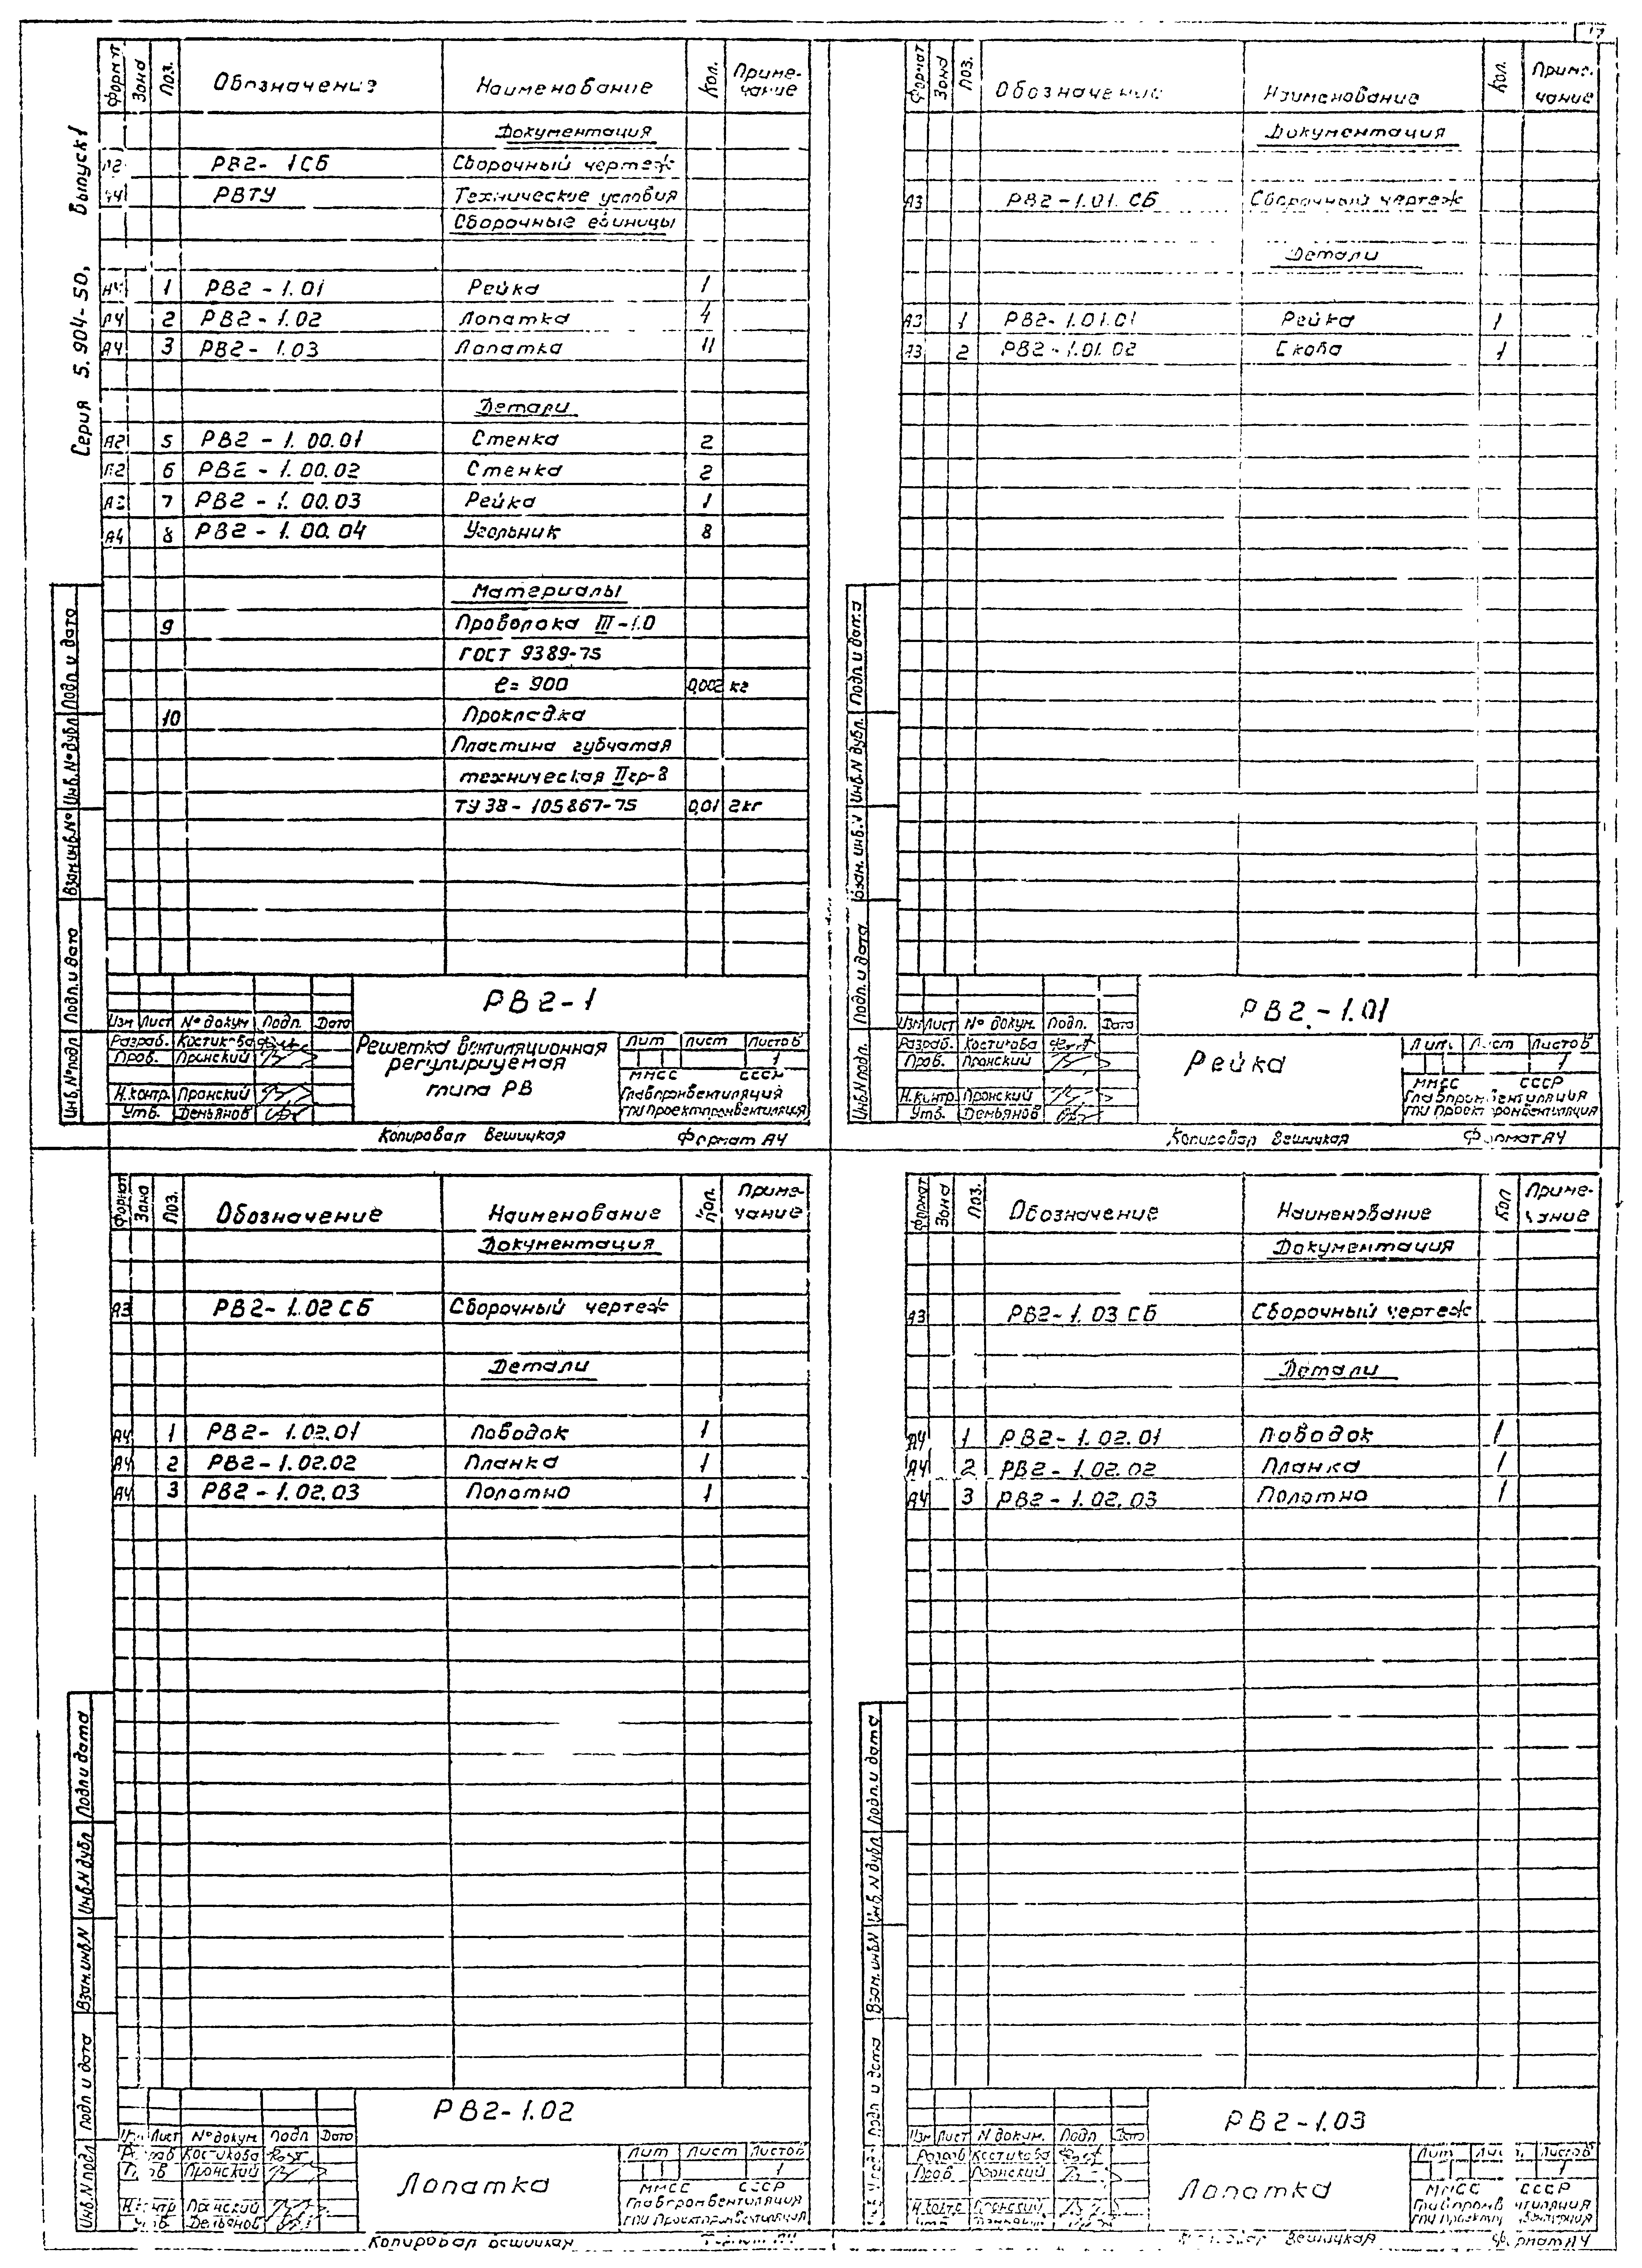 17
Серия 5.904-50. Выпуск 1
Формат Зона Поз. Обозначение Наименование Кол. Примечание
Документация
А2 РВ2-1СБ Сборочный чертеж
А4 РВТУ Технические условия
Сборочные единицы
А4 1 РВ2-1.01 Рейка 1
А4 2 РВ2-1.02 Лопатка 4
А4 3 РВ2-1.03 Лопатка 11
Детали
А2 5 РВ2-1.00.01 Стенка 2
А2 6 РВ2-1.00.02 Стенка 2
А3 7 РВ2-1.00.03 Рейка 1
А4 8 РВ2-1.00.04 Угольник 8
Материалы
9 Проволока III-1.0
ГОСТ 9389-75
ℓ= 900 0,002 кг
10 Прокладка
Пластина губчатая
техническая II гр-8
ТУ 38-105867-75 0,01 2кг
Инв.№подл Подп. и дата Взам.инв.№ Инв.№дубл Подп. и дата
РВ2-1
Изм Лист №докум Подп. Дата
Разраб. Костикова
Пров. Пронский
Н.контр. Пронский
Утв. Демьянов
Решетка вентиляционная
регулируемая
типа РВ
Лит Лист Листов
1
ММСС СССР
Главпромвентиляция
ГПИ Проектпромвентиляция
Копировал Вешицкая Формат А4
Формат Зона Поз. Обозначение Наименование Кол. Примечание
Документация
А3 РВ2-1.01.СБ Сборочный чертеж
Детали
А3 1 РВ2-1.01.01 Рейка 1
А3 2 РВ2-1.01.02 Скоба 1
Инв.N подл. Подп. и дата Взам. инв.N Инв.N дубл. Подп. и дата
РВ2-1.01
Изм Лист №докум. Подп. Дата
Разраб. Костикова
Пров. Пронский
Н.контр. Пронский
Утв. Демьянов
Рейка
Лит. Лист Листов
1
ММСС СССР
Главпромвентиляция
ГПИ Проектпромвентиляция
Копировал Вешицкая Формат А4
Формат Зона Поз. Обозначение Наименование Кол. Примечание
Документация
А3 РВ2-1.02 СБ Сборочный чертеж
Детали
А4 1 РВ2-1.02.01 Поводок 1
А4 2 РВ2-1.02.02 Планка 1
А4 3 РВ2-1.02.03 Полотно 1
Инв.N подл Подп и дата Взам.инв.N Инв.N дубл Подп и дата
РВ2-1.02
Изм Лист №докум Подп Дата
Разраб Костикова
Пров Пронский
Н.контр Пронский
Утв. Демьянов
Лопатка
Лит Лист Листов
1
ММСС СССР
Главпромвентиляция
ГПИ Проектпромвентиляция
Копировал Вешицкая Формат А4
Формат Зона Поз. Обозначение Наименование Кол Примечание
Документация
А3 РВ2-1.03 СБ Сборочный чертеж
Детали
А4 1 РВ2-1.02.01 Поводок 1
А4 2 РВ2-1.02.02 Планка 1
А4 3 РВ2-1.02.03 Полотно 1
Подп и дата Взам.инв.N Инв.N дубл Подп. и дата
РВ2-1.03
Изм Лист N докум. Подп Дата
Разраб Костикова
Пров. Пронский
Н.контр. Пронский
Лопатка
Лит Лист Листов
1
ММСС СССР
Главпромвентиляция
ГПИ Проектпромвентиляция
Копировал Вешицкая Формат А4